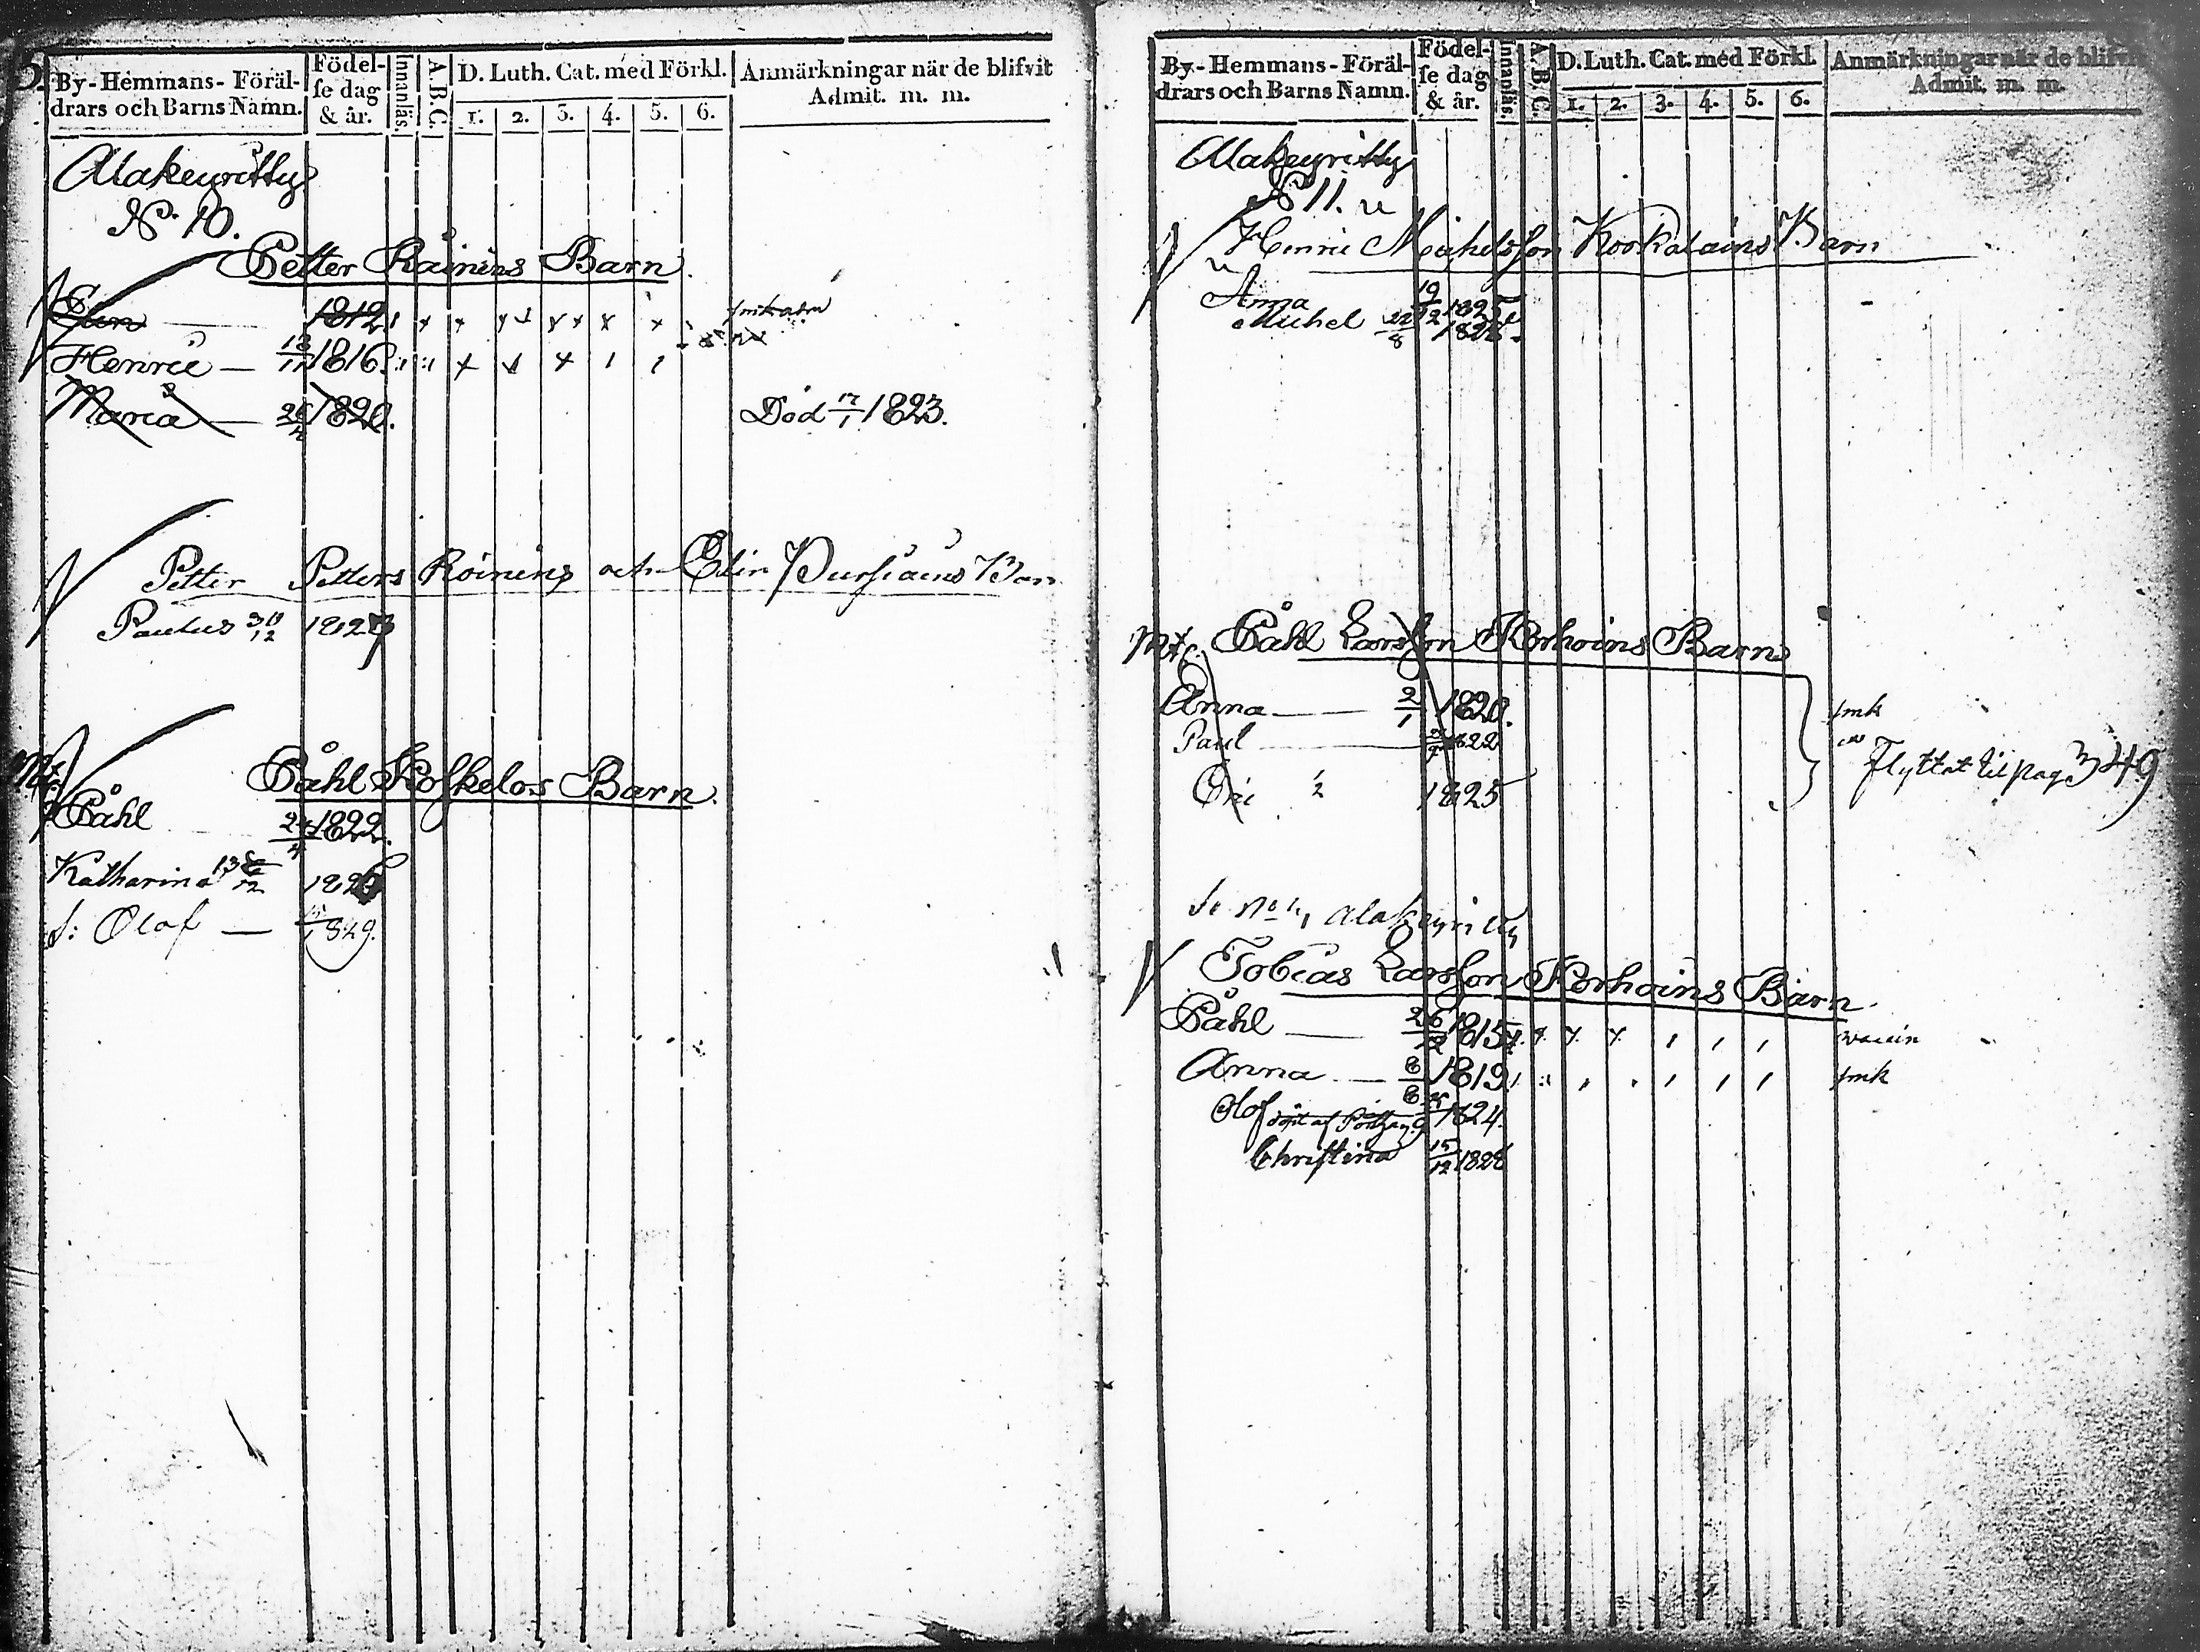 By-Hemmans-Föräl-
drars och Barns Namn.
Födel-
se dag
& år.
Innanläs.
A.B.C.
D. Luth. Cat. med Förkl.
1. 2. 3. 4. 5. 6.
Anmärkningar när de blifvit
Admit. m. m.
Alakeyritty
No 10.
Petter Räinins Barn.
1812
Henric — 18/11 1816.
Maria — 26/4 1820. Död 17/1 1823.
Petter Petters Roinins och Elin Pursiains Barn
Paulus 30/12 1827
Påhl Koskelos Barn.
Påhl 24/4 1822.
Katharina 13/12 1826
s: Olof — 1829.
By-Hemmans-Föräl-
drars och Barns Namn.
Födel-
se dag
& år.
Innanläs.
A.B.C.
D. Luth. Cat. med Förkl.
1. 2. 3. 4. 5. 6.
Anmärkningar när de blifvit
Admit. m. m.
Alakeyritty
No 11.
Henric Michelsson Korkalains Barn
Anna 19/12 1825
Michel 22/8 1828.
Påhl Larsson Korhoins Barn
Anna — 2/1 1820. smk
Paul — 1822
1825
Flyttat til pag 349
Alakeyritty
Tobias Larsson Korhoins Barn.
Påhl — 26/12 1815
Anna — 8/8 1819 smk
Olof 1824.
Christina 15/12 1828